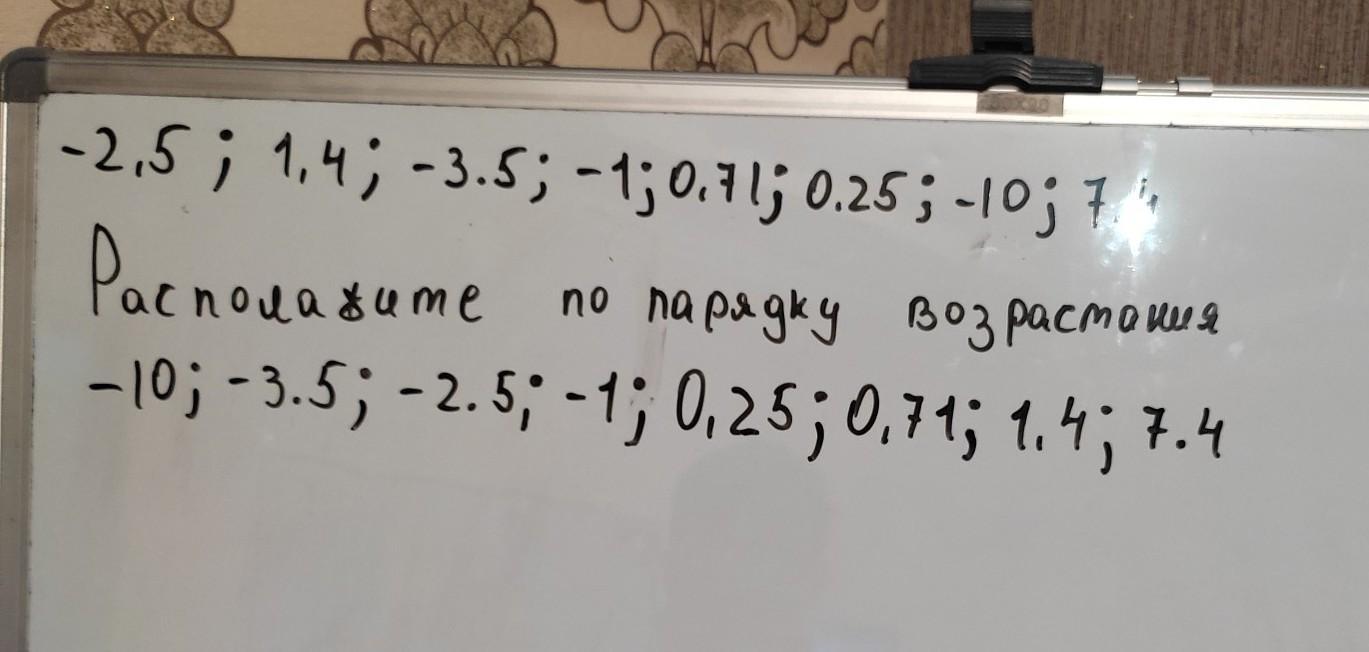 -2,5; 1,4; -3.5; -1; 0.71; 0.25; -10; 7.4
Располажите по парядку возрастания
-10; -3.5; -2.5; -1; 0,25; 0,71; 1.4; 7.4